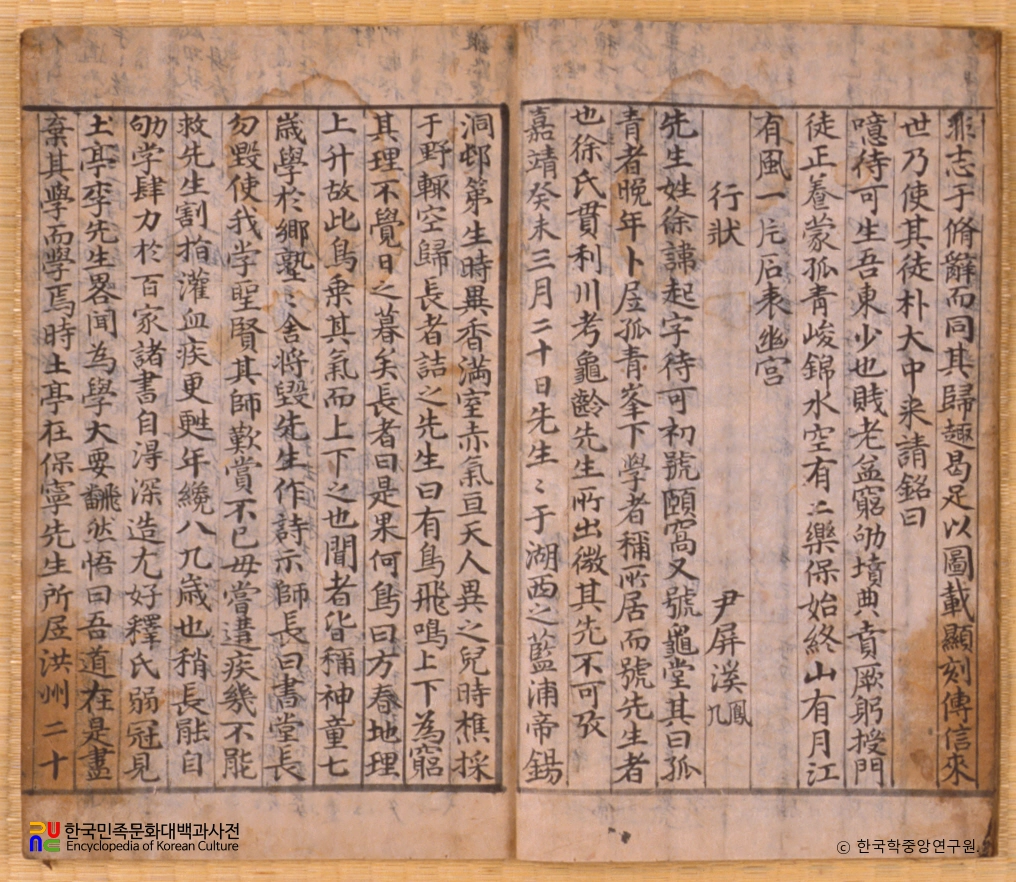 非志于脩辭而同其歸趣曷足以圖載顯刻傳信來
世乃使其徒朴大中來請銘曰
噫待可生吾東少也賤老益窮劬墳典賁厥躬授門
徒正養蒙孤青峻錦水空有二樂保始終山有月江
有風一片石表幽宮
行狀 尹屏溪 鳳九
先生姓徐諱起字待可初號頤窩又號龜堂其曰孤
青者晚年卜居孤青峯下學者稱所居而號先生者
也徐氏貫利川考龜齡先生所出微其先不可攷
嘉靖癸未三月二十日先生〻于湖西之藍浦帝錫
洞邨第生時異香滿室赤氣亘天人異之兒時樵採
于野輒空歸長者詰之先生曰有鳥飛鳴上下為窮
其理不覺日之暮矣長者曰是果何鳥曰方春地理
上升故此鳥乗其氣而上下之也聞者皆稱神童七
歲學於鄉塾〻舍將毀先生作詩示師長曰書堂長
勿毀使我学聖賢其師歎賞不已母嘗遘疾幾不能
救先生割指灌血疾更甦年纔八九歲也稍長能自
劬学肆力於百家諸書自得深造尤好釋氏弱冠見
土亭李先生畧聞為學大要飜然悟曰吾道在是盡
棄其學而學焉時土亭在保寧先生所居洪州二十
한국민족문화대백과사전
Encyclopedia of Korean Culture
© 한국학중앙연구원